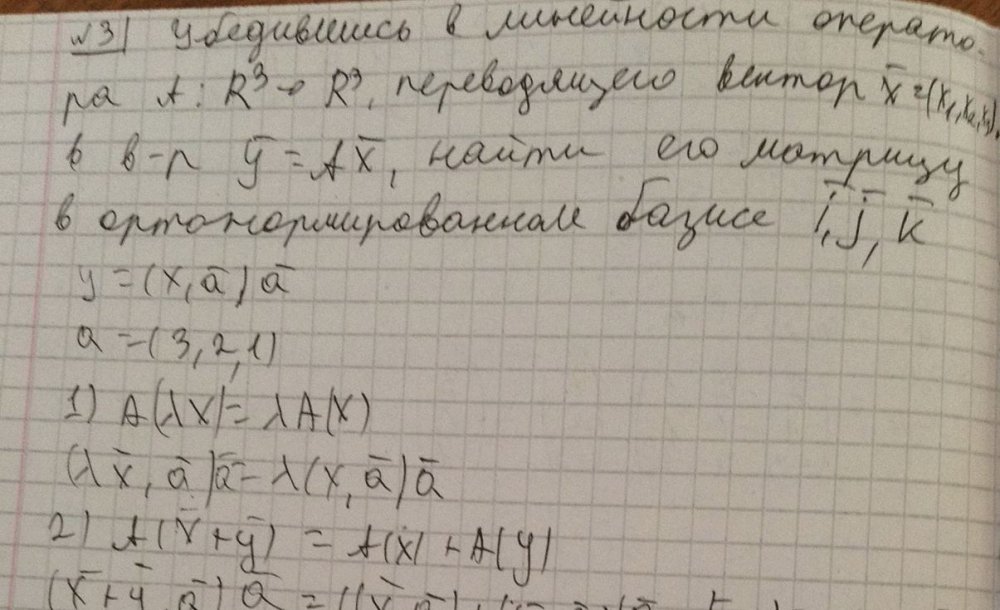 №3) Убедившись в линейности операто-
ра A: R³→R³, переводящего вектор x̄=(x₁,x₂,x₃)
в в-р ȳ = Ax̄, найти его матрицу
в ортонормированном базисе ī, j̄, k̄
y = (x, ā) ā
a = (3, 2, 1)
1) A(λx) = λA(x)
(λx̄, ā)ā = λ(x, ā)ā
2) A(x̄+ȳ) = A(x) + A(y)
(x̄+ȳ, ā) ā =